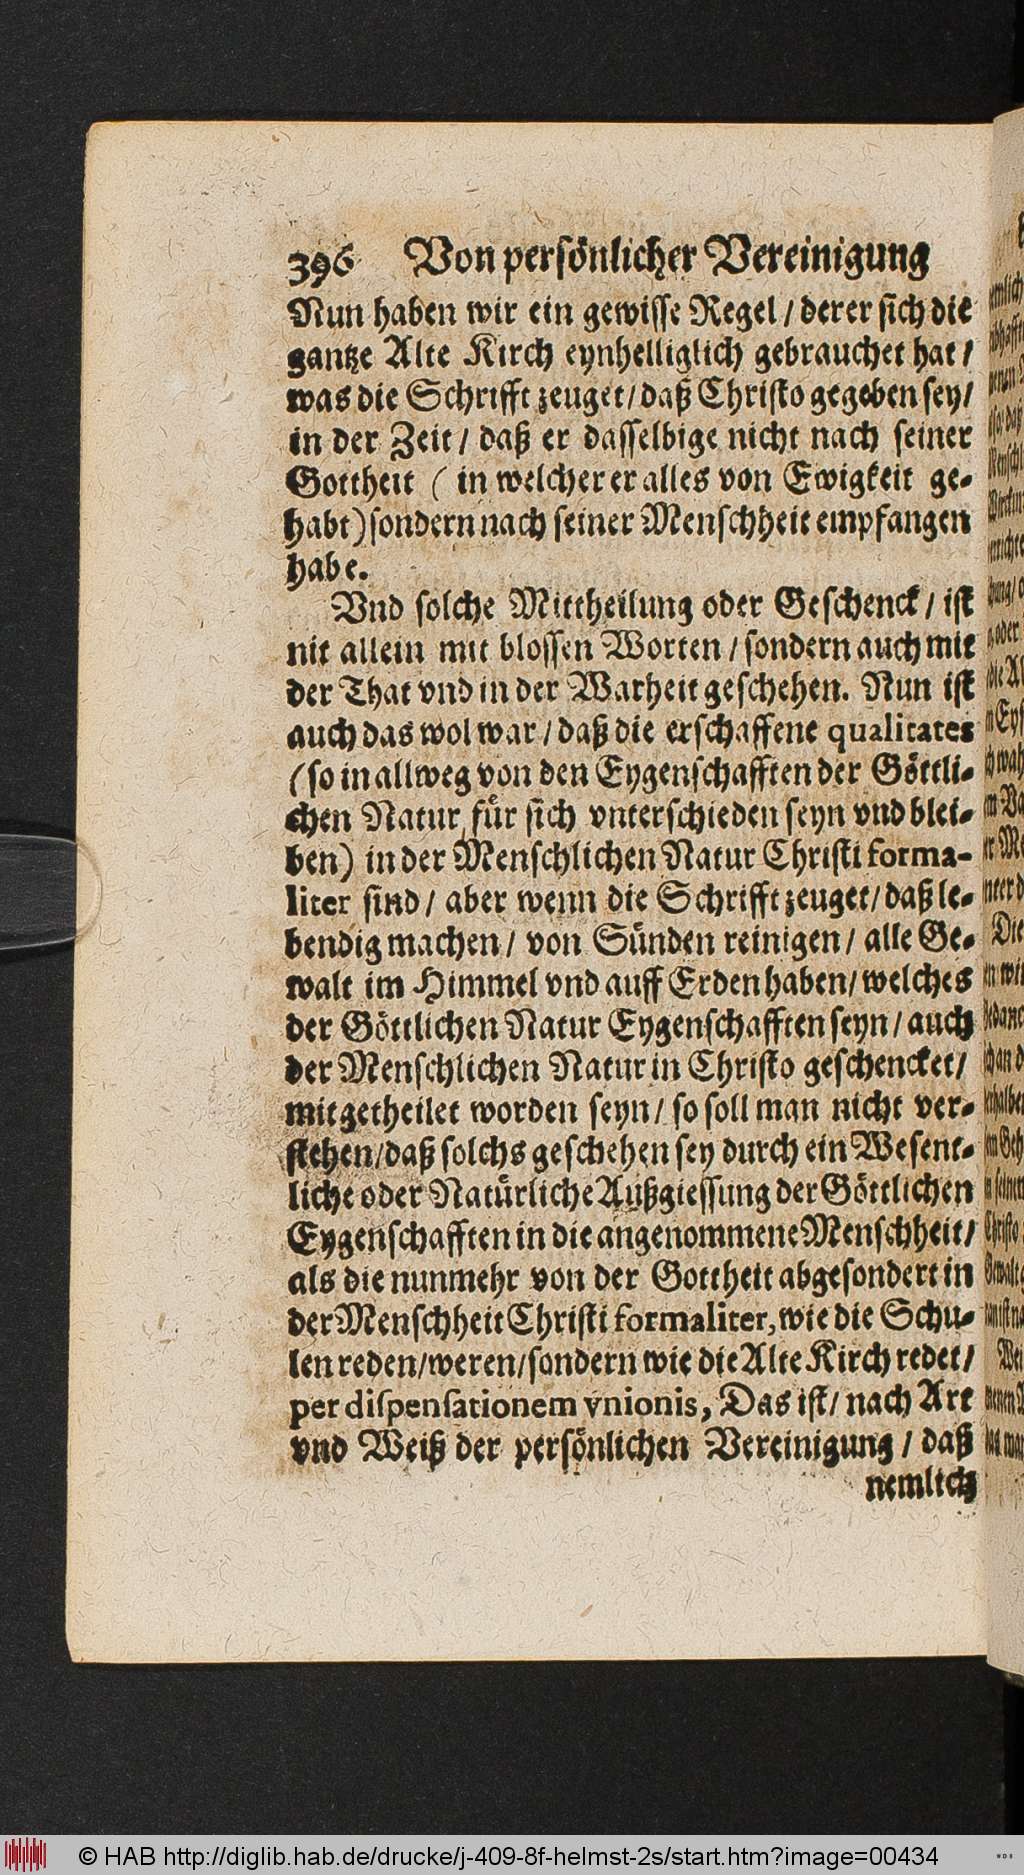 396 Von persönlicher Vereinigung
Nun haben wir ein gewisse Regel / derer sich die
gantze Alte Kirch eynhelliglich gebrauchet hat /
was die Schrifft zeuget / daß Christo gegeben sey /
in der Zeit / daß er dasselbige nicht nach seiner
Gottheit ( in welcher er alles von Ewigkeit ge-
habt ) sondern nach seiner Menschheit empfangen
habe.
Vnd solche Mittheilung oder Geschenck / ist
nit allein mit blossen Worten / sondern auch mit
der That vnd in der Warheit geschehen. Nun ist
auch das wol war / daß die erschaffene qualitates
( so in allweg von den Eygenschafften der Göttli-
chen Natur für sich vnterschieden seyn vnd blei-
ben) in der Menschlichen Natur Christi forma-
liter sind / aber wenn die Schrifft zeuget / daß le-
bendig machen / von Sünden reinigen / alle Ge-
walt im Himmel vnd auff Erden haben / welches
der Göttlichen Natur Eygenschafften seyn / auch
der Menschlichen Natur in Christo geschencket /
mitgetheilet worden seyn / so soll man nicht ver-
stehen / daß solchs geschehen sey durch ein Wesent-
liche oder Natürliche Außgiessung der Göttlichen
Eygenschafften in die angenommene Menschheit /
als die nunmehr von der Gottheit abgesondert in
der Menschheit Christi formaliter, wie die Schu-
len reden / weren / sondern wie die Alte Kirch redet /
per dispensationem vnionis, Das ist / nach Art
vnd Weiß der persönlichen Vereinigung / daß
nemlich
© HAB http://diglib.hab.de/drucke/j-409-8f-helmst-2s/start.htm?image=00434